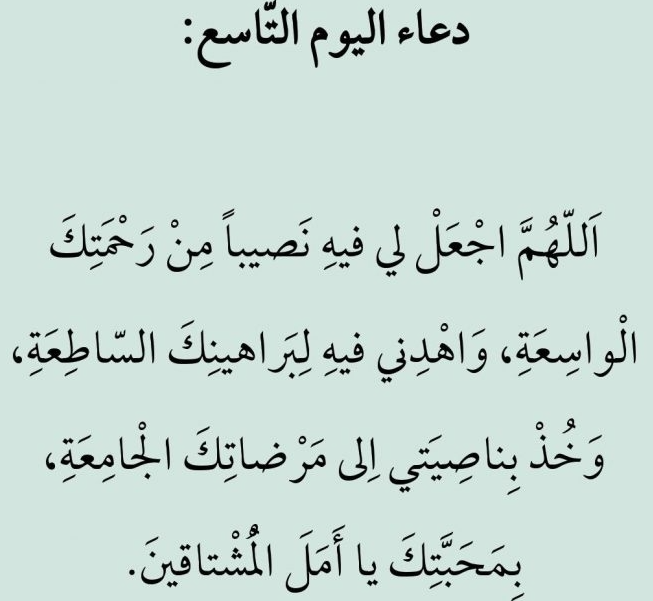 دعاء اليوم التّاسع:
اَللّهُمَّ اجْعَلْ لي فيهِ نَصيباً مِنْ رَحْمَتِكَ
الْواسِعَةِ، وَاهْدِني فيهِ لِبَراهينِكَ السّاطِعَةِ،
وَخُذْ بِناصِيَتي اِلى مَرْضاتِكَ الْجامِعَةِ،
بِمَحَبَّتِكَ يا أَمَلَ الْمُشْتاقينَ.